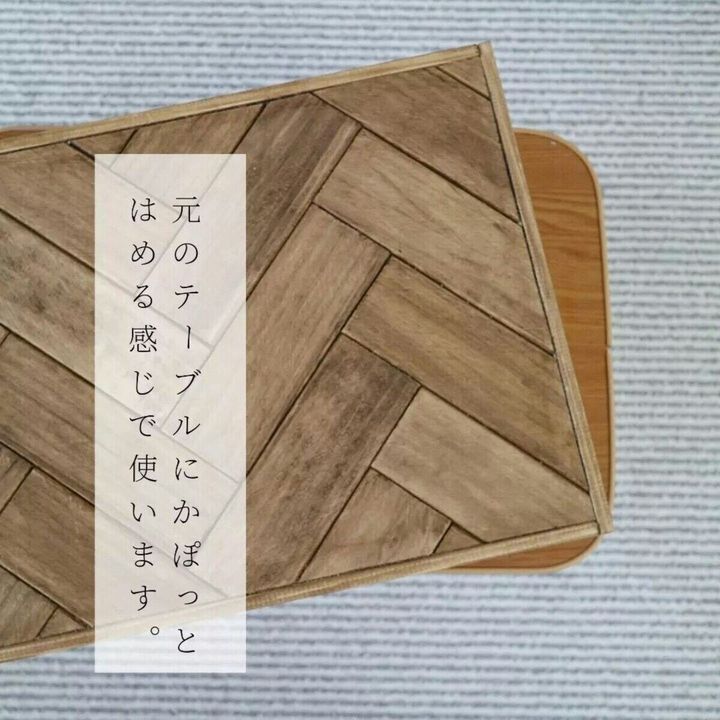 元のテーブルにかぽっと
はめる感じで使います。